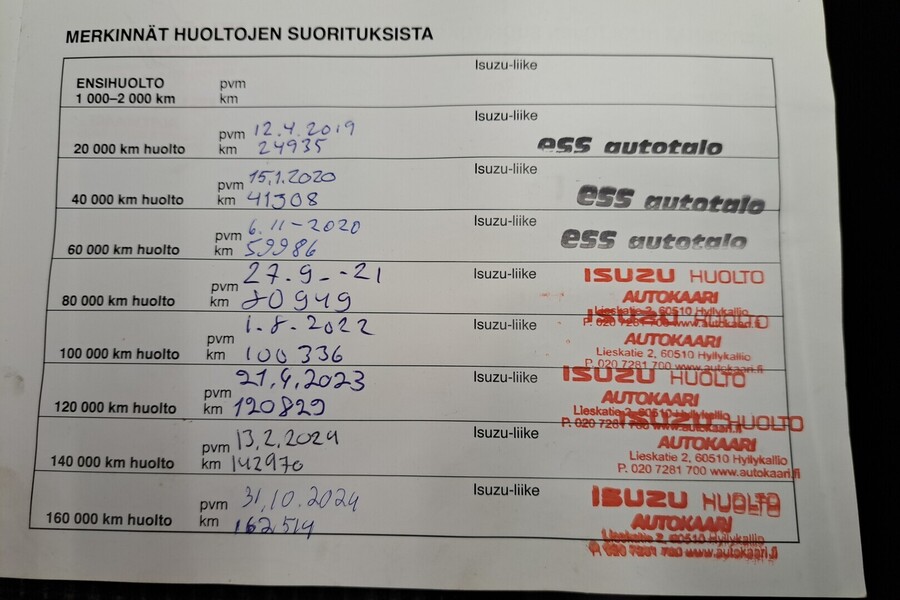 MERKINNÄT HUOLTOJEN SUORITUKSISTA
ENSIHUOLTO pvm Isuzu-liike
1 000–2 000 km km
pvm 12.4.2019 Isuzu-liike
20 000 km huolto km 24935 ess autotalo
pvm 15.1.2020 Isuzu-liike
40 000 km huolto km 41308 ess autotalo
pvm 6.11-2020 Isuzu-liike
60 000 km huolto km 59986 ess autotalo
pvm 27.9.-21 Isuzu-liike ISUZU HUOLTO
80 000 km huolto km 80949 AUTOKAARI
Lieskatie 2, 60510 Hyllykallio
P. 020 7281 700 www.autokaari.fi
pvm 1.8.2022 Isuzu-liike ISUZU HUOLTO
100 000 km huolto km 100 336 AUTOKAARI
Lieskatie 2, 60510 Hyllykallio
P. 020 7281 700 www.autokaari.fi
pvm 21.4.2023 Isuzu-liike ISUZU HUOLTO
120 000 km huolto km 120829 AUTOKAARI
Lieskatie 2, 60510 Hyllykallio
P. 020 7281 700 www.autokaari.fi
pvm 13.2.2024 Isuzu-liike ISUZU HUOLTO
140 000 km huolto km 142970 AUTOKAARI
Lieskatie 2, 60510 Hyllykallio
P. 020 7281 700 www.autokaari.fi
pvm 31.10.2024 Isuzu-liike ISUZU HUOLTO
160 000 km huolto km 162514 AUTOKAARI
Lieskatie 2, 60510 Hyllykallio
P. 020 7281 700 www.autokaari.fi